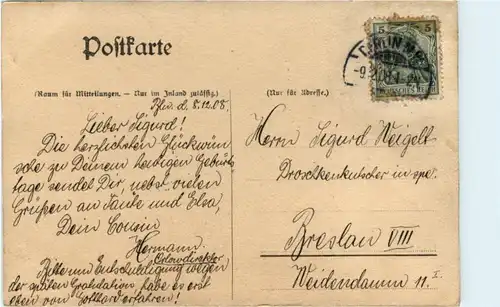 Postkarte
(Raum für Mitteilungen. — Nur im Inland zulässig.)
(Nur für Adresse.)
5 5
BERLIN N.
Bln. d. 8.12.08.
Lieber Sigurd!
Die herzlichsten Glückwün
sche zu Deinem heutigen Geburts
tage sendet Dir, nebst vielen
Grüßen an Tante und Elsa,
Dein Cousin
Hermann
Bitte um Entschuldigung wegen
der späten Gratulation, habe es erst
eben von Gotthard erfahren!
Herrn Sigurd Weigelt
Droschkenkutscher in spe.
Breslau VIII
Weidendamm 11 I.